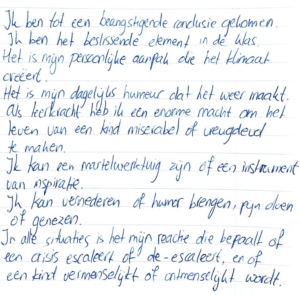 Ik ben tot een beangstigende conclusie gekomen.
Ik ben het beslissende element in de klas.
Het is mijn persoonlijke aanpak die het klimaat
creëert.
Het is mijn dagelijks humeur dat het weer maakt.
Als leerkracht heb ik een enorme macht om het
leven van een kind miserabel of vreugdevol
te maken.
Ik kan een martelwerktuig zijn of een instrument
van inspiratie.
Ik kan vernederen of humor brengen, pijn doen
of genezen.
In alle situaties is het mijn reactie die bepaalt of
een crisis escaleert of de-escaleert, en of
een kind vermenselijkt of ontmenselijkt wordt.